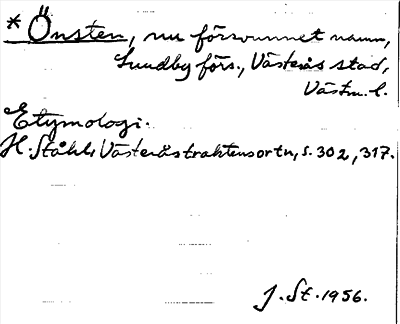 * Önsten, nu försvunnet namn,
Lundby förs., Västerås stad,
Västm. l.
Etymologi.
H. Ståhl: Västeråstraktens ortn., s. 302, 317.
J. St. 1956.